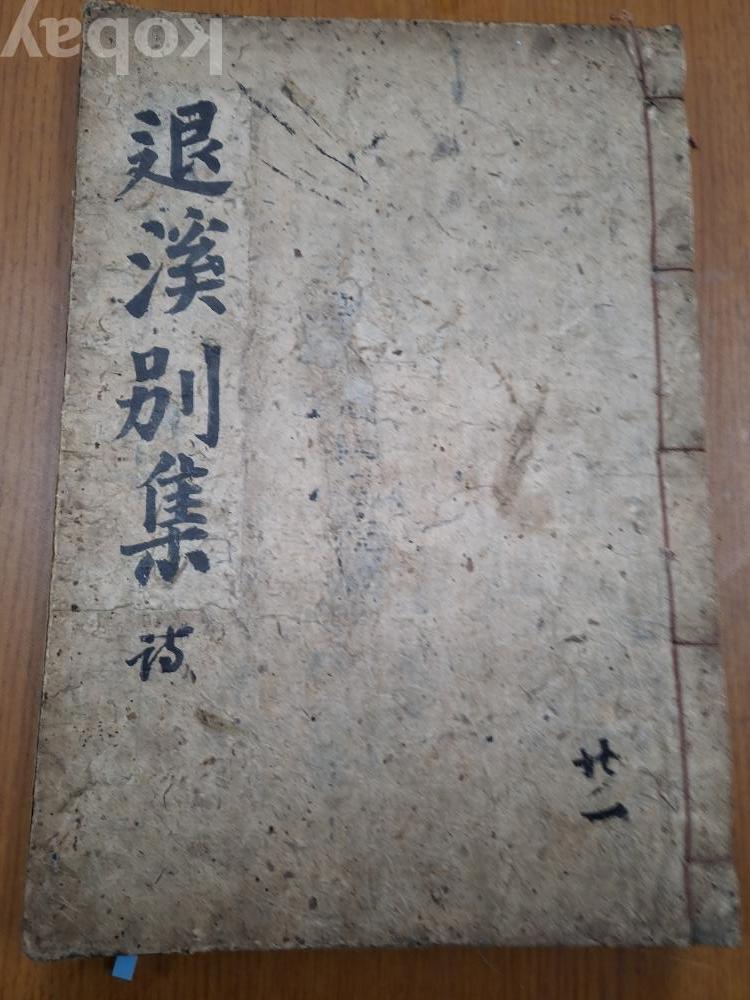 kobay
退溪別集
詩
廿一